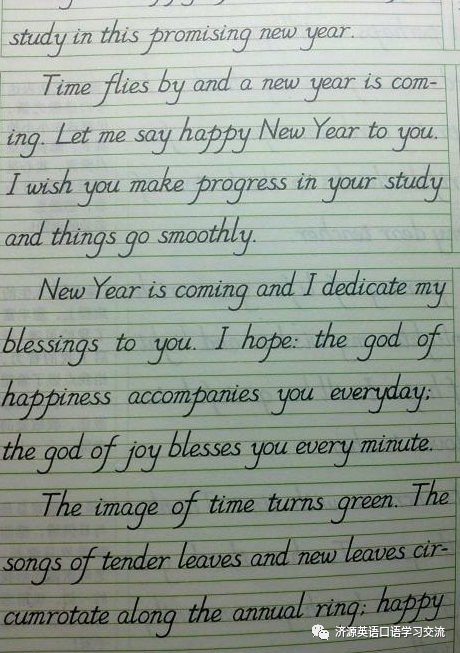 study in this promising new year.
Time flies by and a new year is com-
ing. Let me say happy New Year to you.
I wish you make progress in your study
and things go smoothly.
New Year is coming and I dedicate my
blessings to you. I hope: the god of
happiness accompanies you everyday;
the god of joy blesses you every minute.
The image of time turns green. The
songs of tender leaves and new leaves cir-
cumrotate along the annual ring; happy
济源英语口语学习交流